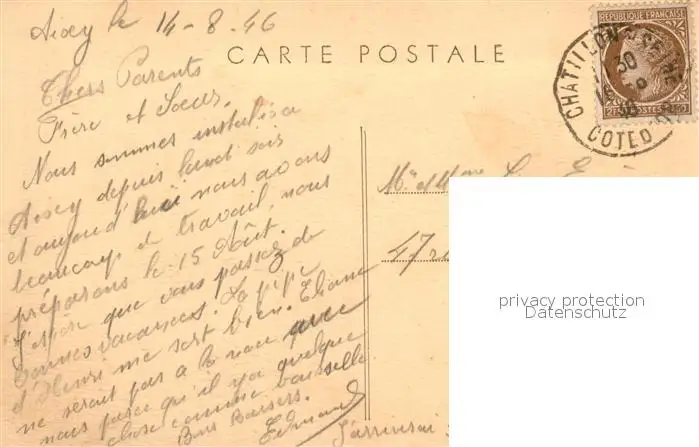 Aisey le 14-8.46
CARTE POSTALE
REPUBLIQUE FRANÇAISE
CHATILLON S SEINE
30
COTE D
POSTES
Chers Parents
Frère et Soeur.
Nous sommes installés a
Aisey depuis lundi soir
et aujourd'hui nous avons
beaucoup de travail, nous
préparons le 15 Août.
J'espère que vous passez de
bonnes vacances. La
et Henri me sert bien. Eliane
ne serait pas à la noce avec
nous parce qu'il y a quelque
chose comme vaisselle
Bons Baisers.
Edmond
J'arriverai
Mr et Mme
47 r
privacy protection
Datenschutz